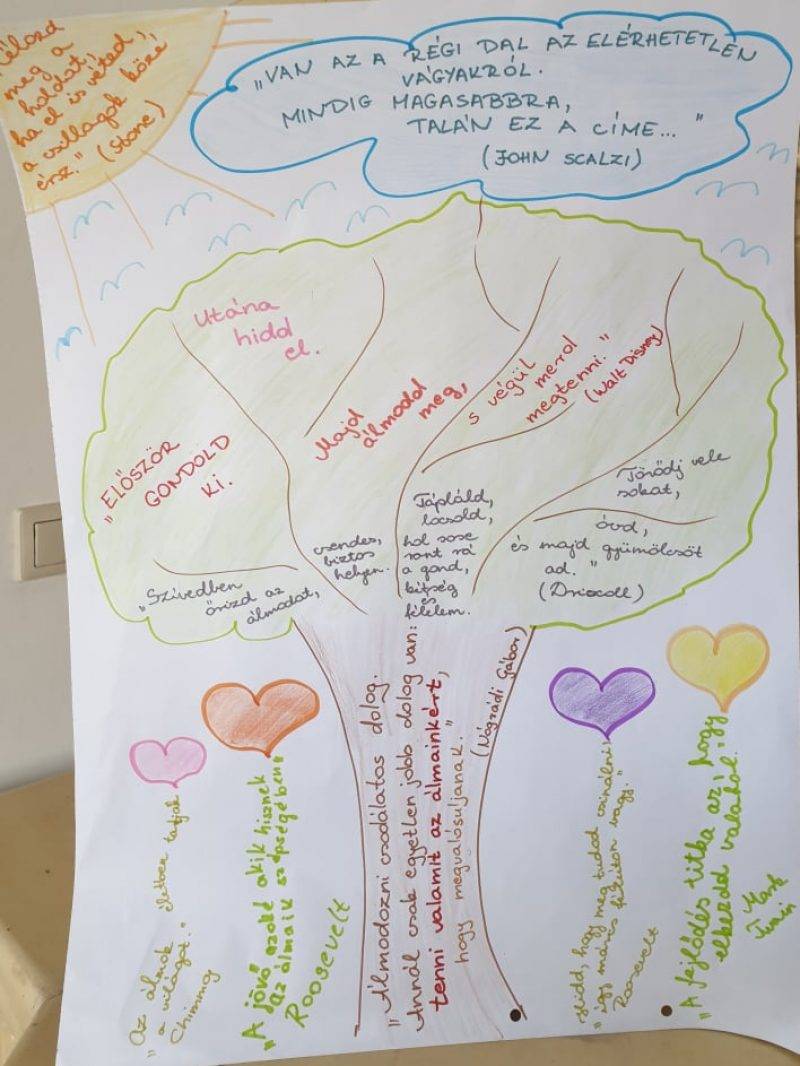 Célozd
meg a
holdat,
ha el is véted,
a csillagok közé
érsz." (Stone)
„VAN AZ A RÉGI DAL AZ ELÉRHETETLEN
VÁGYAKRÓL.
MINDIG MAGASABBRA,
TALÁN EZ A CÍME..."
(JOHN SCALZI)
„ELŐSZÖR
GONDOLD
KI.
Utána
hidd
el.
Majd
álmodd
meg,
s végül
merd
megtenni."
(Walt Disney)
„Szívedben
őrizd az
álmodat,
csendes,
biztos
helyen.
Tápláld,
locsold,
hol sose
ront rá
a gond,
kétség
és
félelem.
Törődj vele
sokat,
óvd,
és majd gyümölcsöt
ad."
(Driscoll)
„Álmodozni csodálatos dolog.
Annál csak egyetlen jobb dolog van:
tenni valamit az álmainkért,
hogy megvalósuljanak."
(Nógrádi Gábor)
„Az álmok életben tartják
a világot."
„A jövő azoké akik hisznek
az álmaik szépségében"
Roosevelt
„Hidd, hogy meg tudod csinálni,
így máris félúton vagy."
Roosevelt
"A fejlődés titka az, hogy
elkezdd valahol."
Mark
Twain